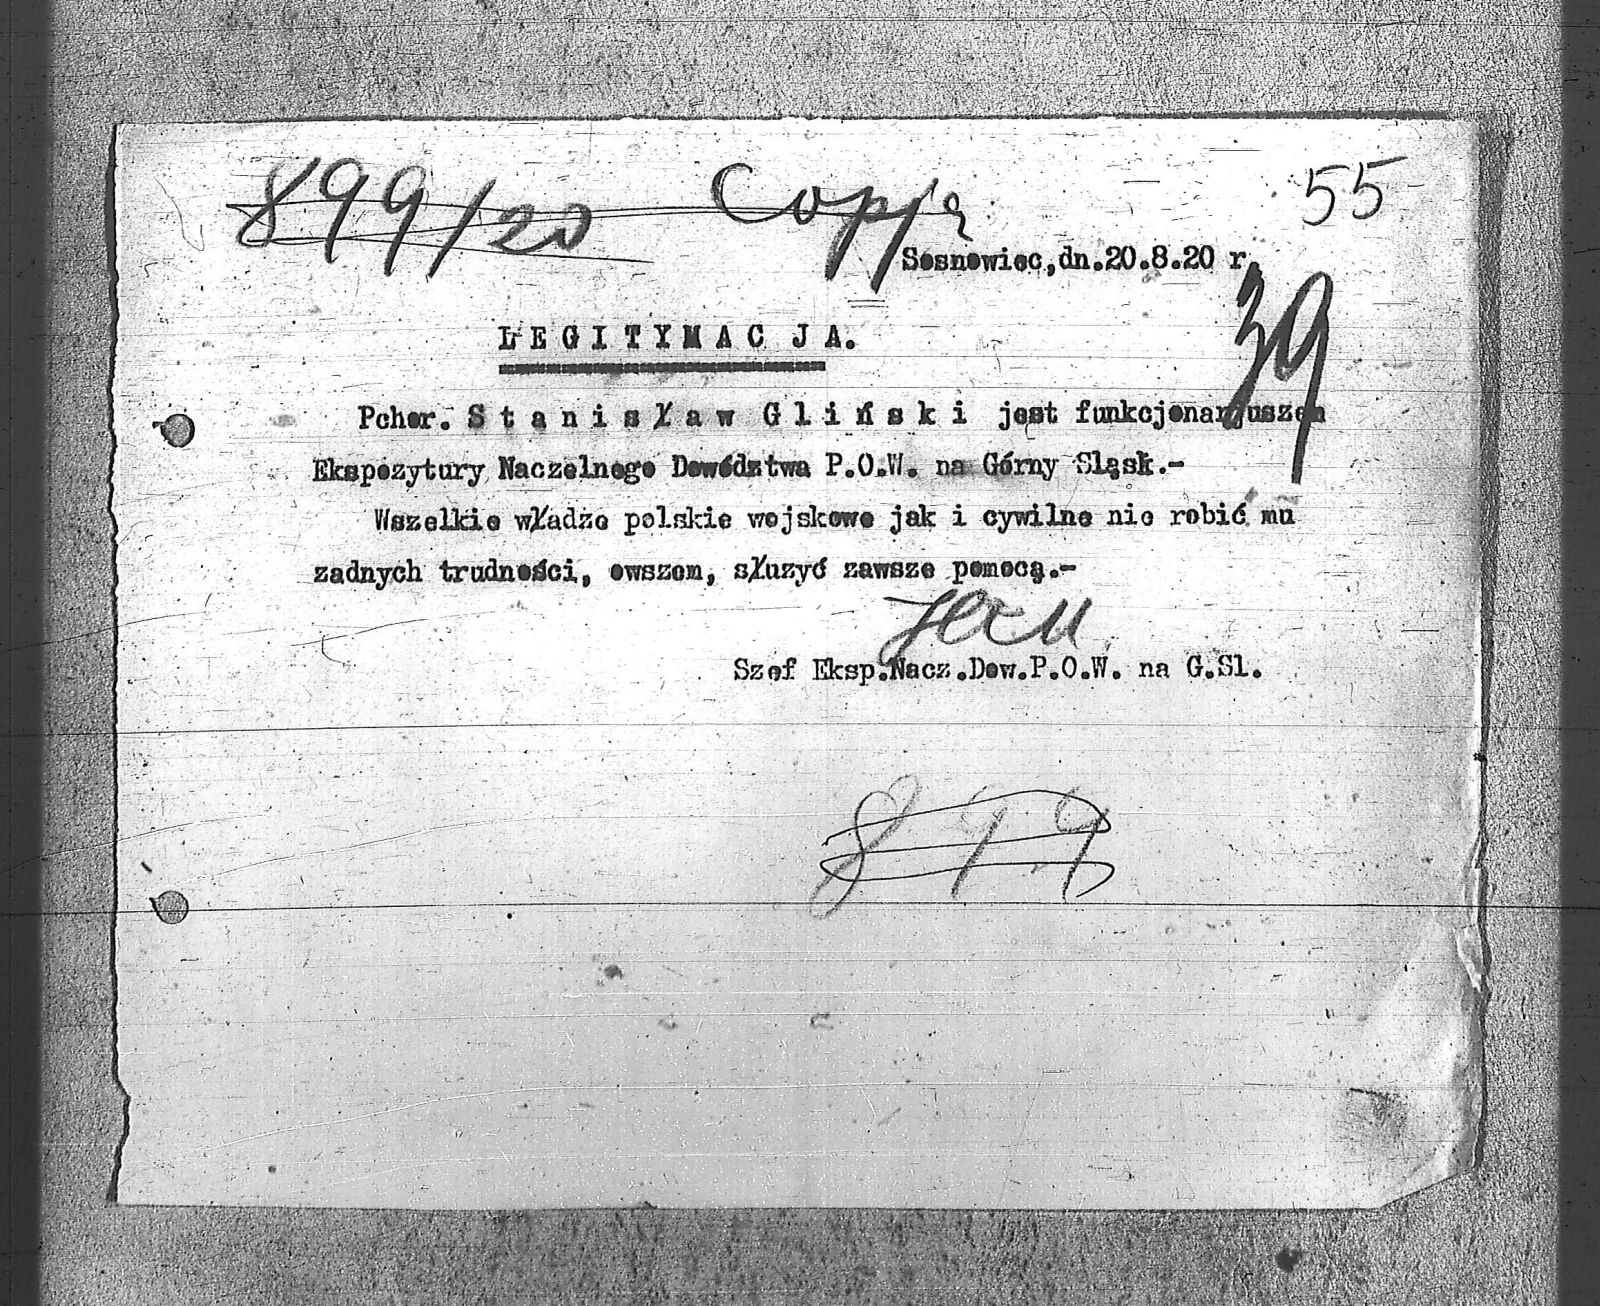 899/20 Copja 55
Sosnowiec,dn.20.8.20 r.
39
LEGITYMACJA.
Pchor. Stanisław Gliński jest funkcjonarjuszem
Ekspozytury Naczelnego Dowództwa P.O.W. na Górny Sląsk.-
Wszelkie władze polskie wojskowe jak i cywilne nie robić mu
zadnych trudności, owszem, słuzyć zawsze pomocą.-
Szef Eksp.Nacz.Dow.P.O.W. na G.Sl.
899